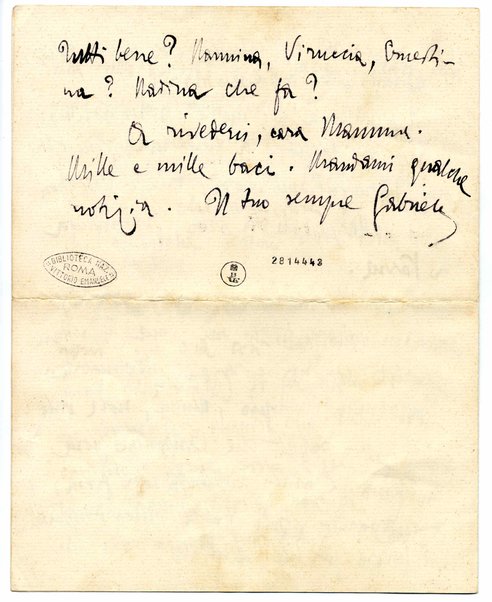 Tutti bene? Nannina, Virnuccia, Ernesti-
na? Nadina che fa?
A rivederci, cara Mamma.
Mille e mille baci. Mandami qualche
notizia. Il tuo sempre Gabriele
BIBLIOTECA NAZ.
ROMA
VITTORIO EMANUELE
2814448